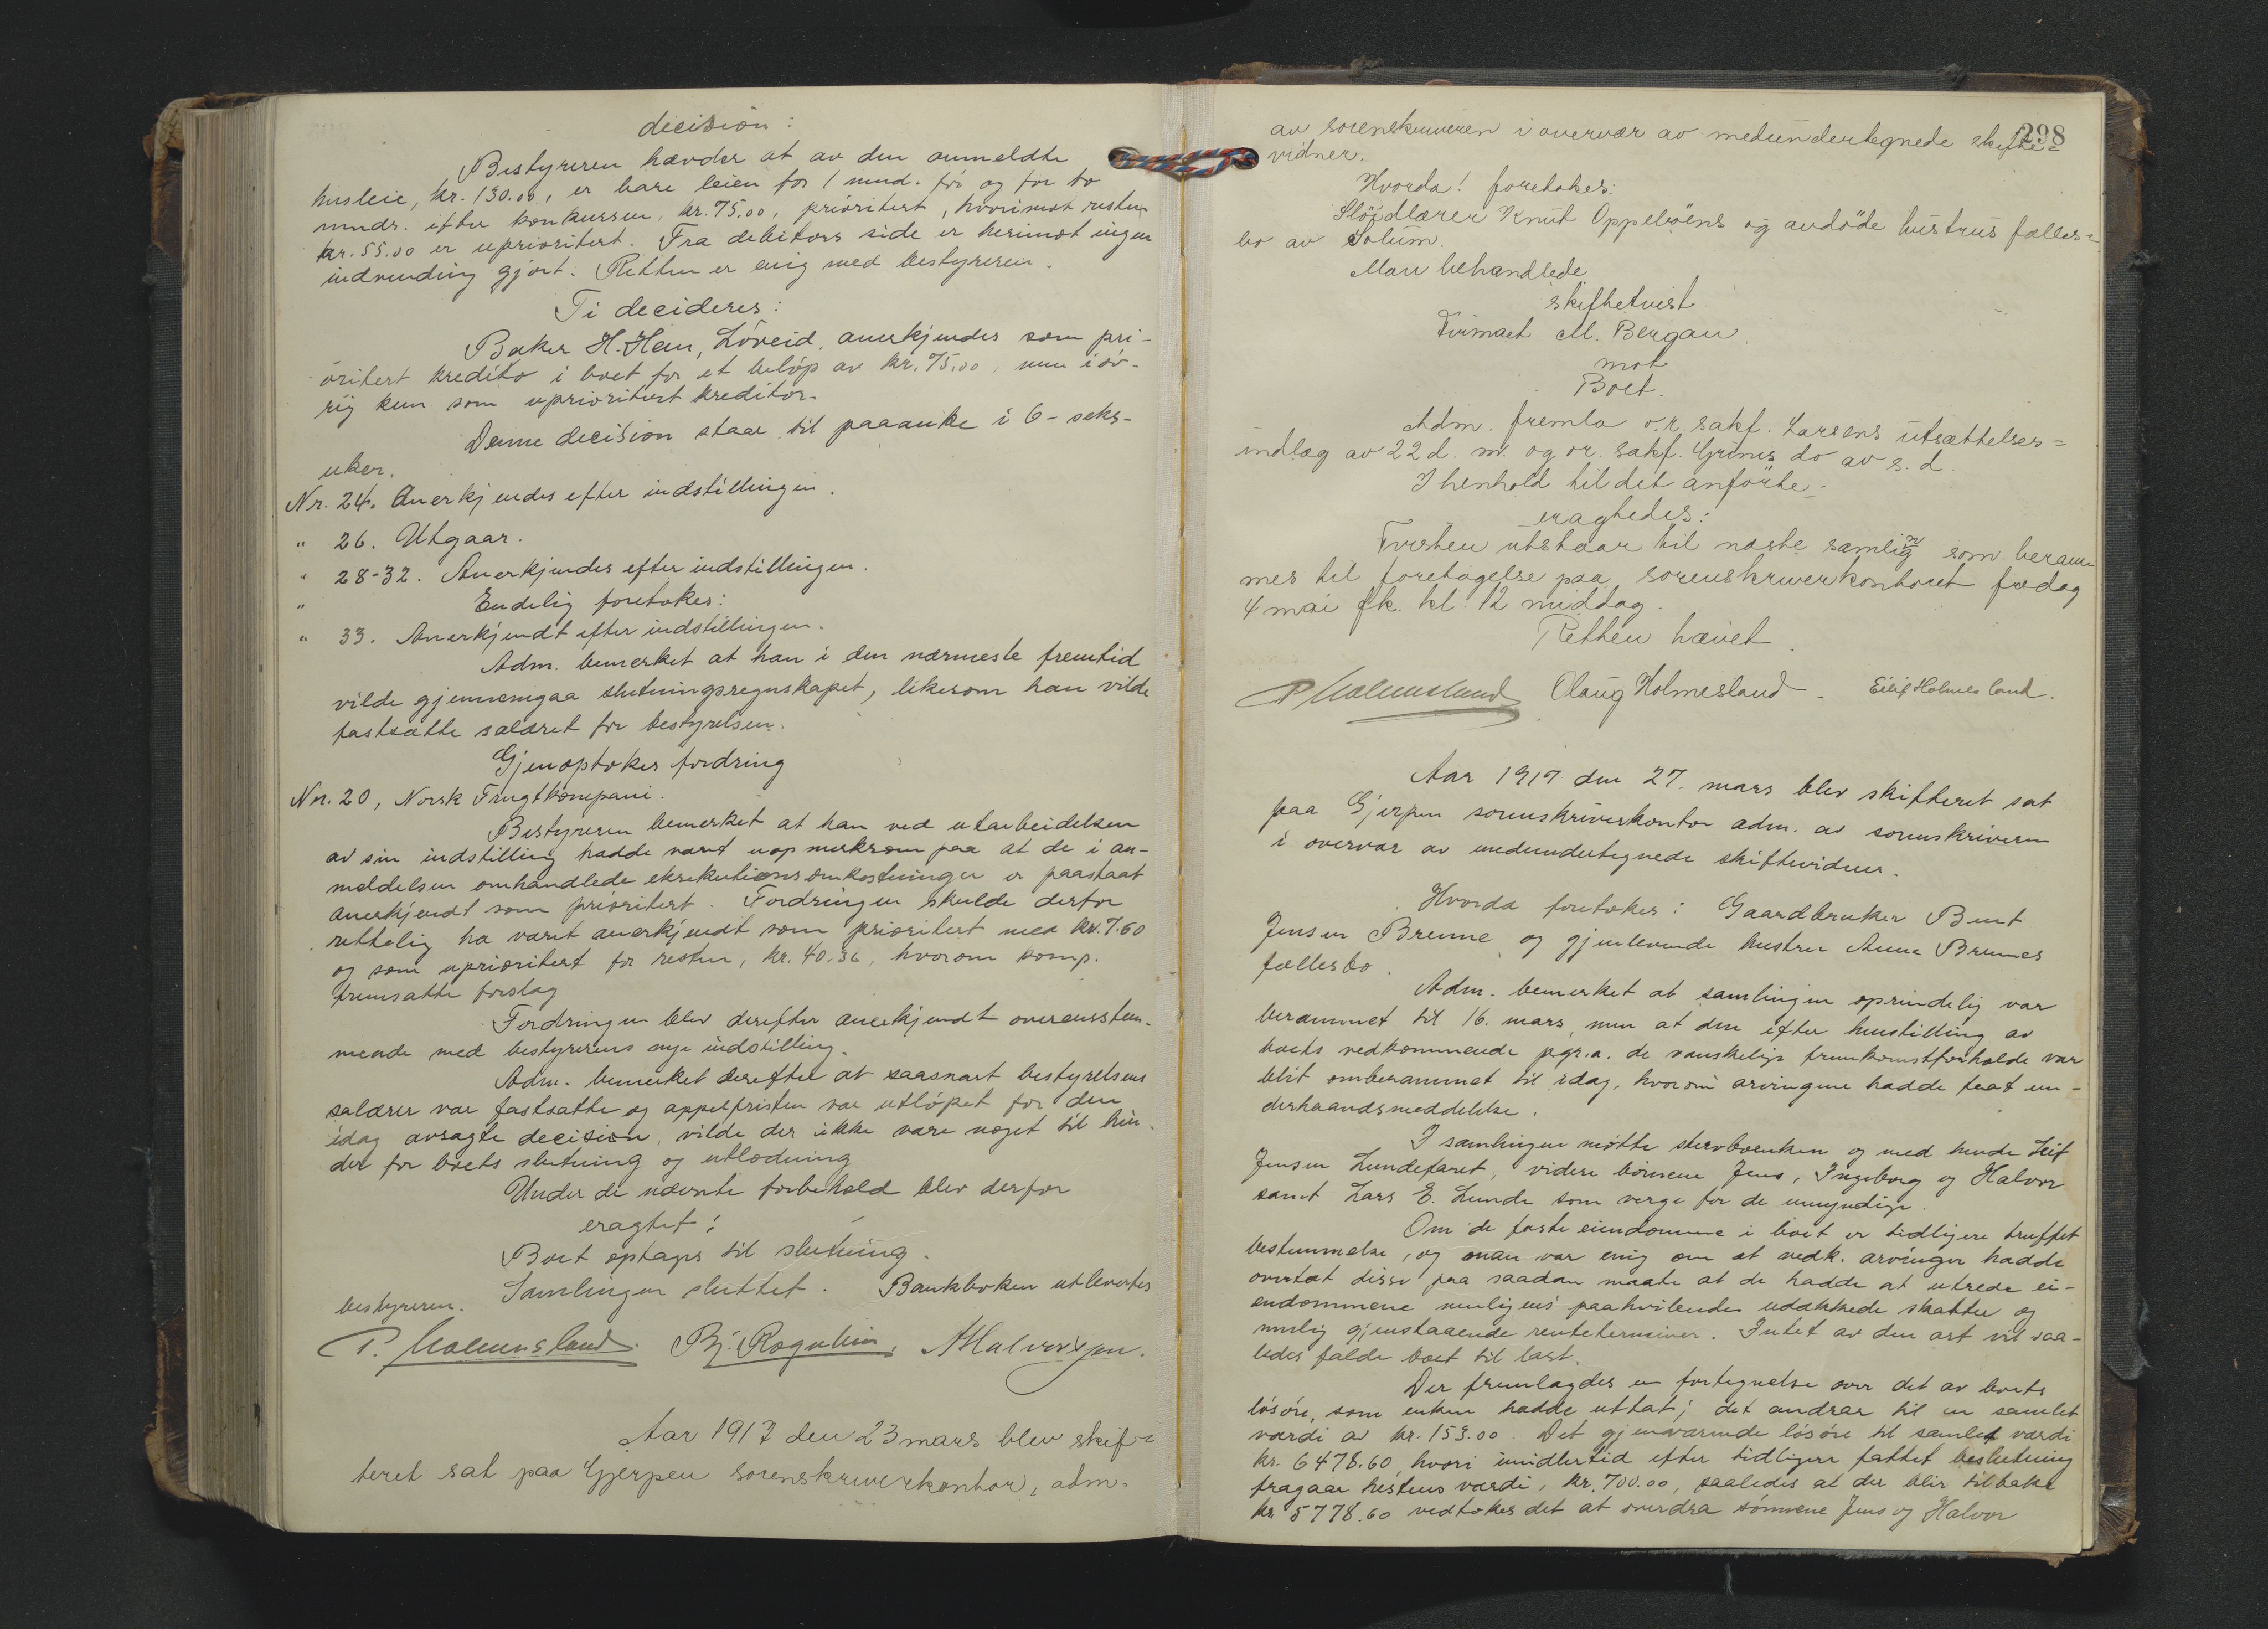 decision:
Bestyreren hævder at av den anmeldte
husleie, kr. 130.00, er bare leien for 1 mnd. før og for to
mndr. efter konkursen, kr. 75.00, prioritert, hvorimot resten
kr. 55.00 er uprioritert. Fra debitors side er herimot ingen
indvending gjort. Retten er enig med bestyreren.
Ti decideres:
Baker H. Hem, Löveid, anerkjendes som pri-
oritert kreditor i boet for et beløp av kr. 75.00, men iøv-
rig kun som uprioritert kreditor.
Denne decision staar til paaanke i 6 - seks -
uker.
Nr. 24. Anerkjendes efter indstillingen.
" 26. Utgaar.
" 28-32. Anerkjendes efter indstillingen.
" Endelig foretokes:
" 33. Anerkjendt efter indstillingen.
Adm. bemerket at han i den nærmeste fremtid
vilde gjennemgaa slutningsregnskapet, likesom han vilde
fastsætte salæret for bestyrelsen.
Gjenoptokes fordring
Nr. 20, Norsk Frugtkompani.
Bestyreren bemerket at han ved utarbeidelsen
av sin indstilling hadde været uopmerksom paa at de i an-
meldelsen omhandlede eksekutionsomkostninger er paastaat
anerkjendt som prioritert. Fordringen skulde derfor
rettelig ha været anerkjendt som prioritert med kr. 7.60
og som uprioritert for resten, kr. 40.36, hvorom komp.
fremsatte forslag
Fordringen blev derefter anerkjendt overensstem-
mende med bestyrerens nye indstilling.
Adm. bemerket derefter at saasnart bestyrelsens
salærer var fastsatte og appelfristen var utløpet for den
idag avsagte decision, vilde der ikke være noget til hin-
der for boets slutning og utlodning
Under de nævnte forbehold blev derfor
eragtet:
Boet optages til slutning.
Samlingen sluttet. Bankboken utlevertes
bestyreren.
P. Holmesland. Bj. Rogulin, A Halvorsen.
Aar 1917 den 23 mars blev skif-
teret sat paa Gjerpen sorenskriverkontor, adm.
298
av sorenskriveren i overvær av medundertegnede skifte=
vidner.
Hvorda! foretokes:
Slöidlærer Knut Oppeböens og avdöde hustrus fælles=
bo av Solum.
Man behandlede
skiftetvist
Firmaet M. Bergan
mot
Boet.
Adm. fremla o.r. sakf. Larsens utsættelses=
indlæg av 22 d. m. og or. sakf. Grinis do av s. d.
I henhold til det anförte
eragtedes:
Tvisten utstaar til næste samling som beram-
mes til foretagelse paa sorenskriverkontoret fredag
4 mai fk. kl. 12 middag.
Retten hævet.
P Holmesland Olaug Holmesland - Eilif Holmesland.
Aar 1917 den 27. mars blev skifteret sat
paa Gjerpen sorenskriverkontor adm. av sorenskriveren
i overvær av medundertegnede skiftevidner.
Hvorda foretokes: Gaardbruker Bent
Jensen Brenne og gjenlevende hustru Anne Brennes
fællesbo.
Adm. bemerket at samlingen oprindelig var
berammet til 16. mars, men at den efter henstilling av
boets vedkommende pgr.a. de vanskelige fremkomstforholde var
blit omberammet til idag, hvorom arvingene hadde faat un-
derhaandsmeddelelse.
I samlingen møtte stervboenken og med hende Leif
Jensen Lundefaret, videre børnene Jens, Ingeborg og Halvor
samt Lars E. Lunde som verge for de umyndige.
Om de faste eiendomme i boet er tidligere truffet
bestemmelse, og man var enig om at vedk. arvinger hadde
overtat disse paa saadan maate at de hadde at utrede ei-
endommene muligens paahvilende udækkede skatter og
mulig gjenstaaende renteterminer. Intet av den art vil saa-
ledes falde boet til last.
Der fremlagdes en fortegnelse over det av boets
løsøre, som enken hadde uttat; det andrar til en samlet
værdi av kr. 153.00. Det gjenværende løsøre til samlet værdi
kr. 6478.60, hvori imidlertid efter tidligere fattet beslutning
fragaar hestens værdi, kr. 700.00, saaledes at der blir tilbake
kr. 5778.60 vedtokes det at overdra sønnene Jens og Halvor